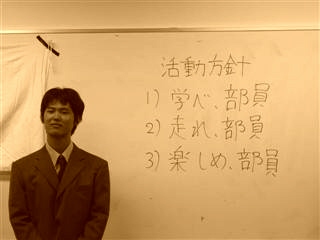 活動方針
1) 学べ、部員
2) 走れ、部員
3) 楽しめ、部員